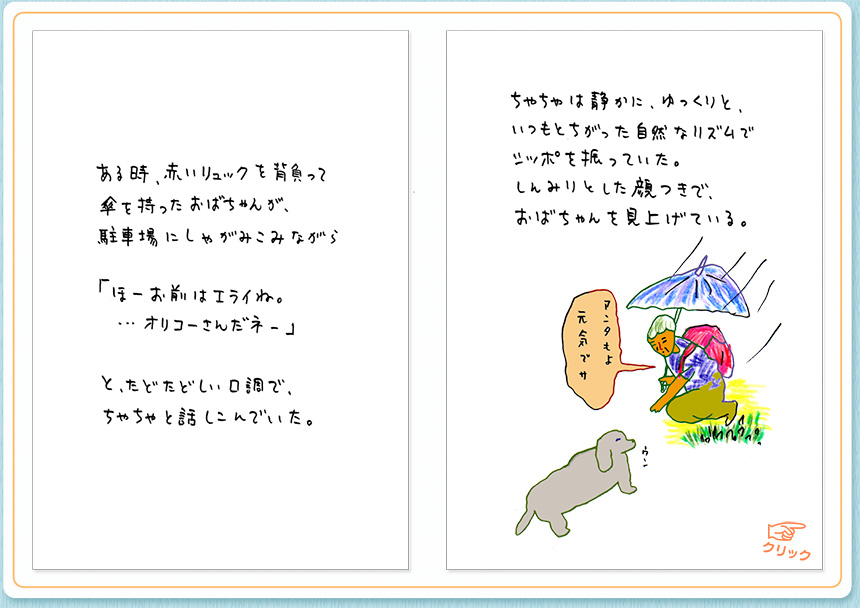 ある時、赤いリュックを背負って
傘を持ったおばちゃんが、
駐車場にしゃがみこみながら
「ほーお前はエライね。
…オリコーさんだネー」
と、たどたどしい口調で、
ちゃちゃと話しこんでいた。
ちゃちゃは静かに、ゆっくりと、
いつもとちがった自然なリズムで
シッポを振っていた。
しんみりとした顔つきで、
おばちゃんを見上げている。
アンタもよ
元気でサ
ウン
クリック